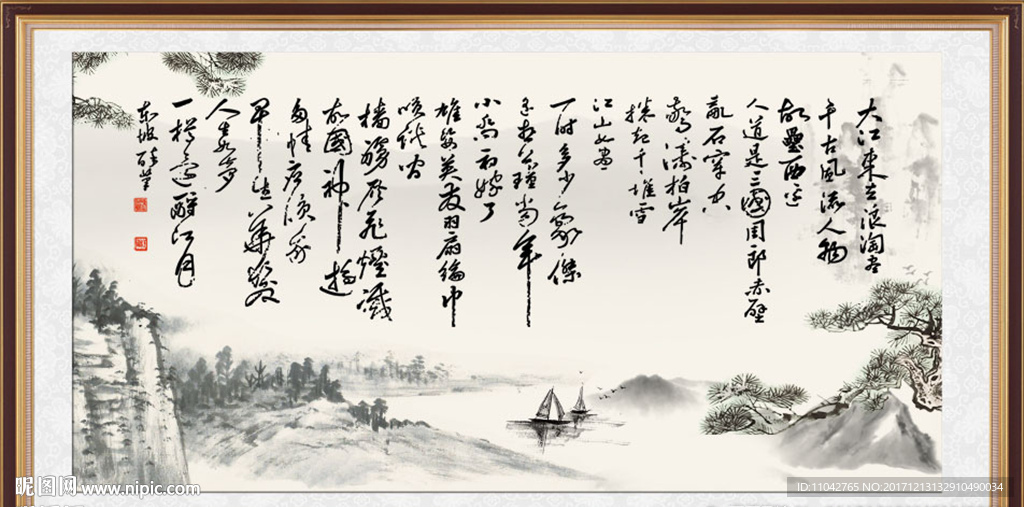 大江東去浪淘盡
千古風流人物
故壘西邊
人道是三國周郎赤壁
亂石穿空
驚濤拍岸
捲起千堆雪
江山如畫
一時多少豪傑
遙想公瑾當年
小喬初嫁了
雄姿英發羽扇綸巾
笑談間
檣櫓灰飛煙滅
故國神遊
多情應笑我
早生華髮
人生如夢
一樽還酹江月
東坡
昵图网 www.nipic.com
ID:11042765 NO:20171213132910490034